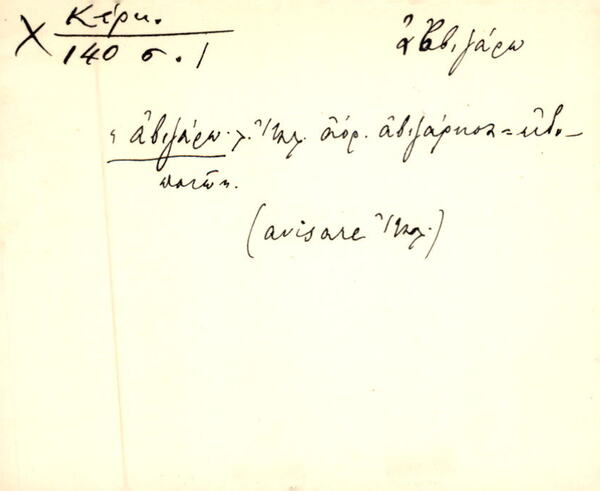 Χ Κέρκ.
140 σ. 1
ἀβιζάρω
" ἀβιζάρω· λ. Ἰταλ. ἀόρ. ἀβιζάρησα = εἰδο-
ποιῶ".
(avisare Ἰταλ.)